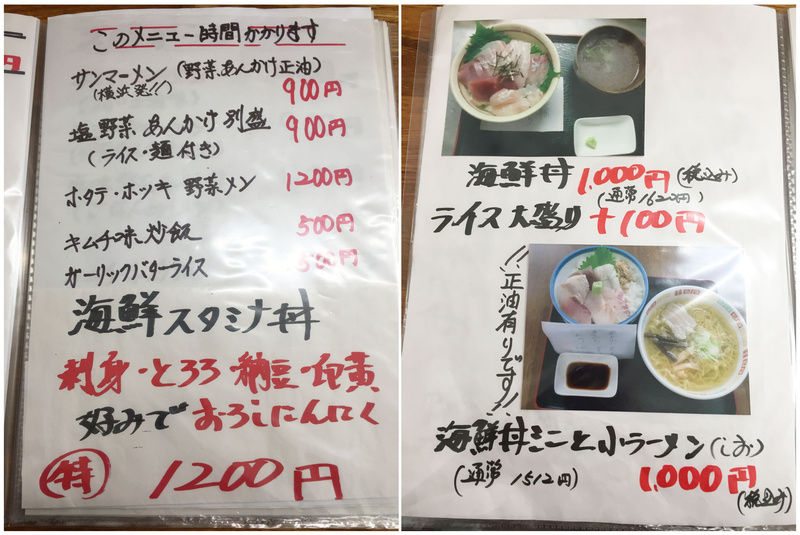 このメニュー時間かかります
サンマーメン(野菜あんかけ正油)
(横浜発!!)
900円
塩野菜あんかけ別盛
900円
(ライス・麺付き)
ホタテ・ホッキ 野菜メン
1200円
キムチ味炒飯
500円
ガーリックバターライス
500円
海鮮スタミナ丼
刺身・とろろ・納豆・卵黄
好みでおろしにんにく
特 1200円
海鮮丼 1,000円(税込み)
(通常1620円)
ライス大盛り +100円
!!正油有りです!!
海鮮丼ミニと小ラーメン(しお)
(通常 1512円) 1,000円
(税込み)